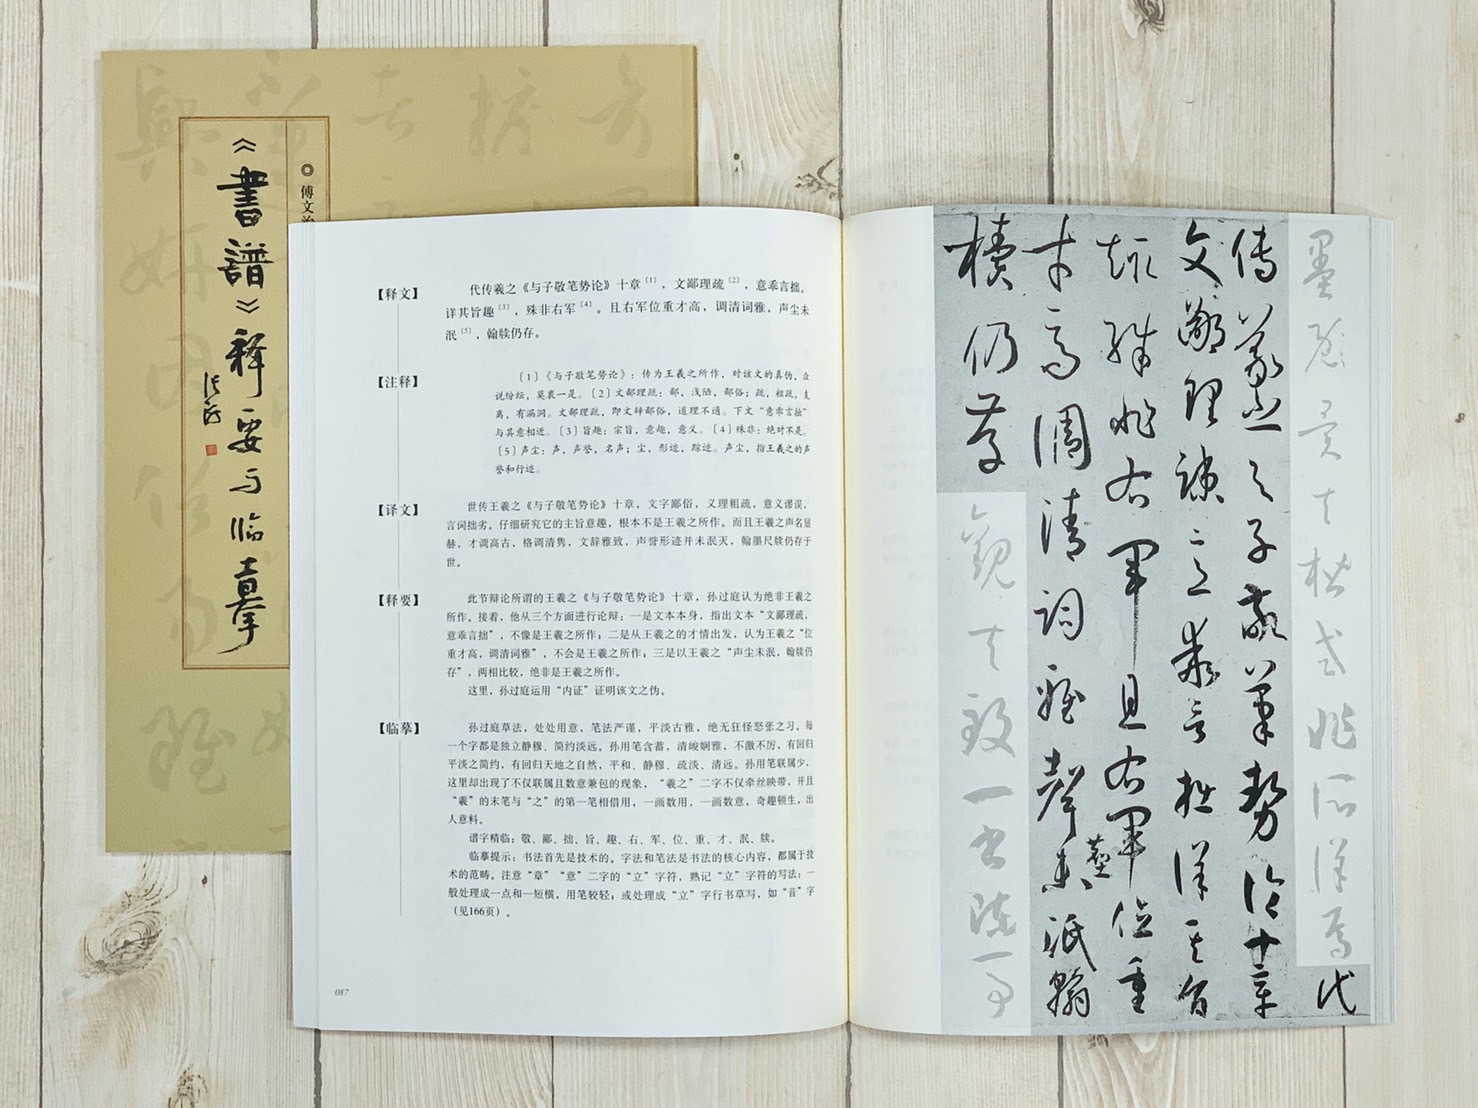 《書譜》释要与临摹
◎ 傅文治
【释文】
代传羲之《与子敬笔势论》十章〔1〕，文鄙理疏〔2〕，意乖言拙。
详其旨趣〔3〕，殊非右军〔4〕。且右军位重才高，调清词雅，声尘未
泯〔5〕，翰牍仍存。
【注释】
〔1〕《与子敬笔势论》：传为王羲之所作，对该文的真伪，众
说纷纭，莫衷一是。〔2〕文鄙理疏：鄙，浅陋，鄙俗；疏，粗疏，支
离，有漏洞。文鄙理疏，即文辞鄙俗，道理不通。下文“意乖言拙”
与其意相近。〔3〕旨趣：宗旨，意趣，意义。〔4〕殊非：绝对不是。
〔5〕声尘：声，声誉，名声；尘，形迹，踪迹。声尘，指王羲之的声
誉和行迹。
【译文】
世传王羲之《与子敬笔势论》十章，文字鄙俗，义理粗疏，意义谬误，
言词拙劣。仔细研究它的主旨意趣，根本不是王羲之所作。而且王羲之声名显
赫，才调高古，格调清隽，文辞雅致，声誉形迹并未泯灭，翰墨尺牍仍存于
世。
【释要】
此节辩论所谓的王羲之《与子敬笔势论》十章，孙过庭认为绝非王羲之
所作。接着，他从三个方面进行论辩：一是文本本身，指出文本“文鄙理疏，
意乖言拙”，不像是王羲之所作；二是从王羲之的才情出发，认为王羲之“位
重才高，调清词雅”，不会是王羲之所作；三是以王羲之“声尘未泯，翰牍仍
存”，两相比较，绝非是王羲之所作。
这里，孙过庭运用“内证”证明该文之伪。
【临摹】
孙过庭草法，处处用意，笔法严谨，平淡古雅，绝无狂怪怒张之习。每
一个字都是独立静穆、简约淡远。孙用笔含蓄，清峻娴雅，不激不厉，有回归
平淡之简约，有回归天地之自然，平和、静穆、疏淡、清远。孙用笔联属少，
这里却出现了不仅联属且数意兼包的现象，“羲之”二字不仅牵丝映带，并且
“羲”的末笔与“之”的第一笔相借用，一画数用，一画数意，奇趣顿生，出
人意料。
谱字精临：敬、鄙、拙、旨、趣、右、军、位、重、才、泯、牍。
临摹提示：书法首先是技术的。字法和笔法是书法的核心内容，都属于技
术的范畴。注意“章”“意”二字的“立”字符，熟记“立”字符的写法：一
般处理成一点和一短横，用笔较轻；或处理成“立”字行书草写，如“音”字
（见166页）。
087
代
傳羲之与子敬筆勢論十章
文鄙理踈意乖言拙詳其旨
趣殊非右軍且右軍位重
才高調清詞雅聲塵未泯翰
櫝仍存
觀夫致一書陳一事